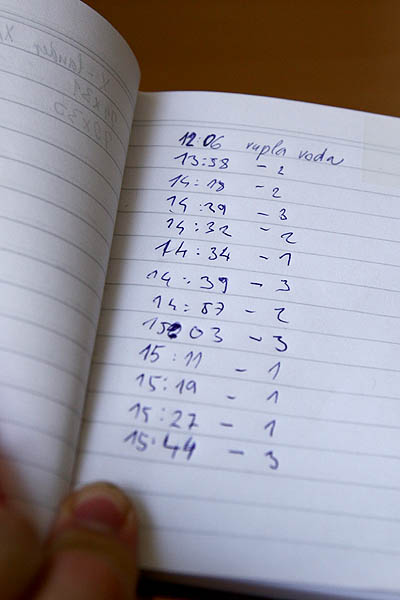 12:06 rupla voda
13:58 - 2
14:19 - 2
14:29 - 3
14:32 - 2
14:34 - 1
14:39 - 3
14:57 - 2
15:03 - 3
15:11 - 1
15:19 - 1
15:27 - 1
15:44 - 3